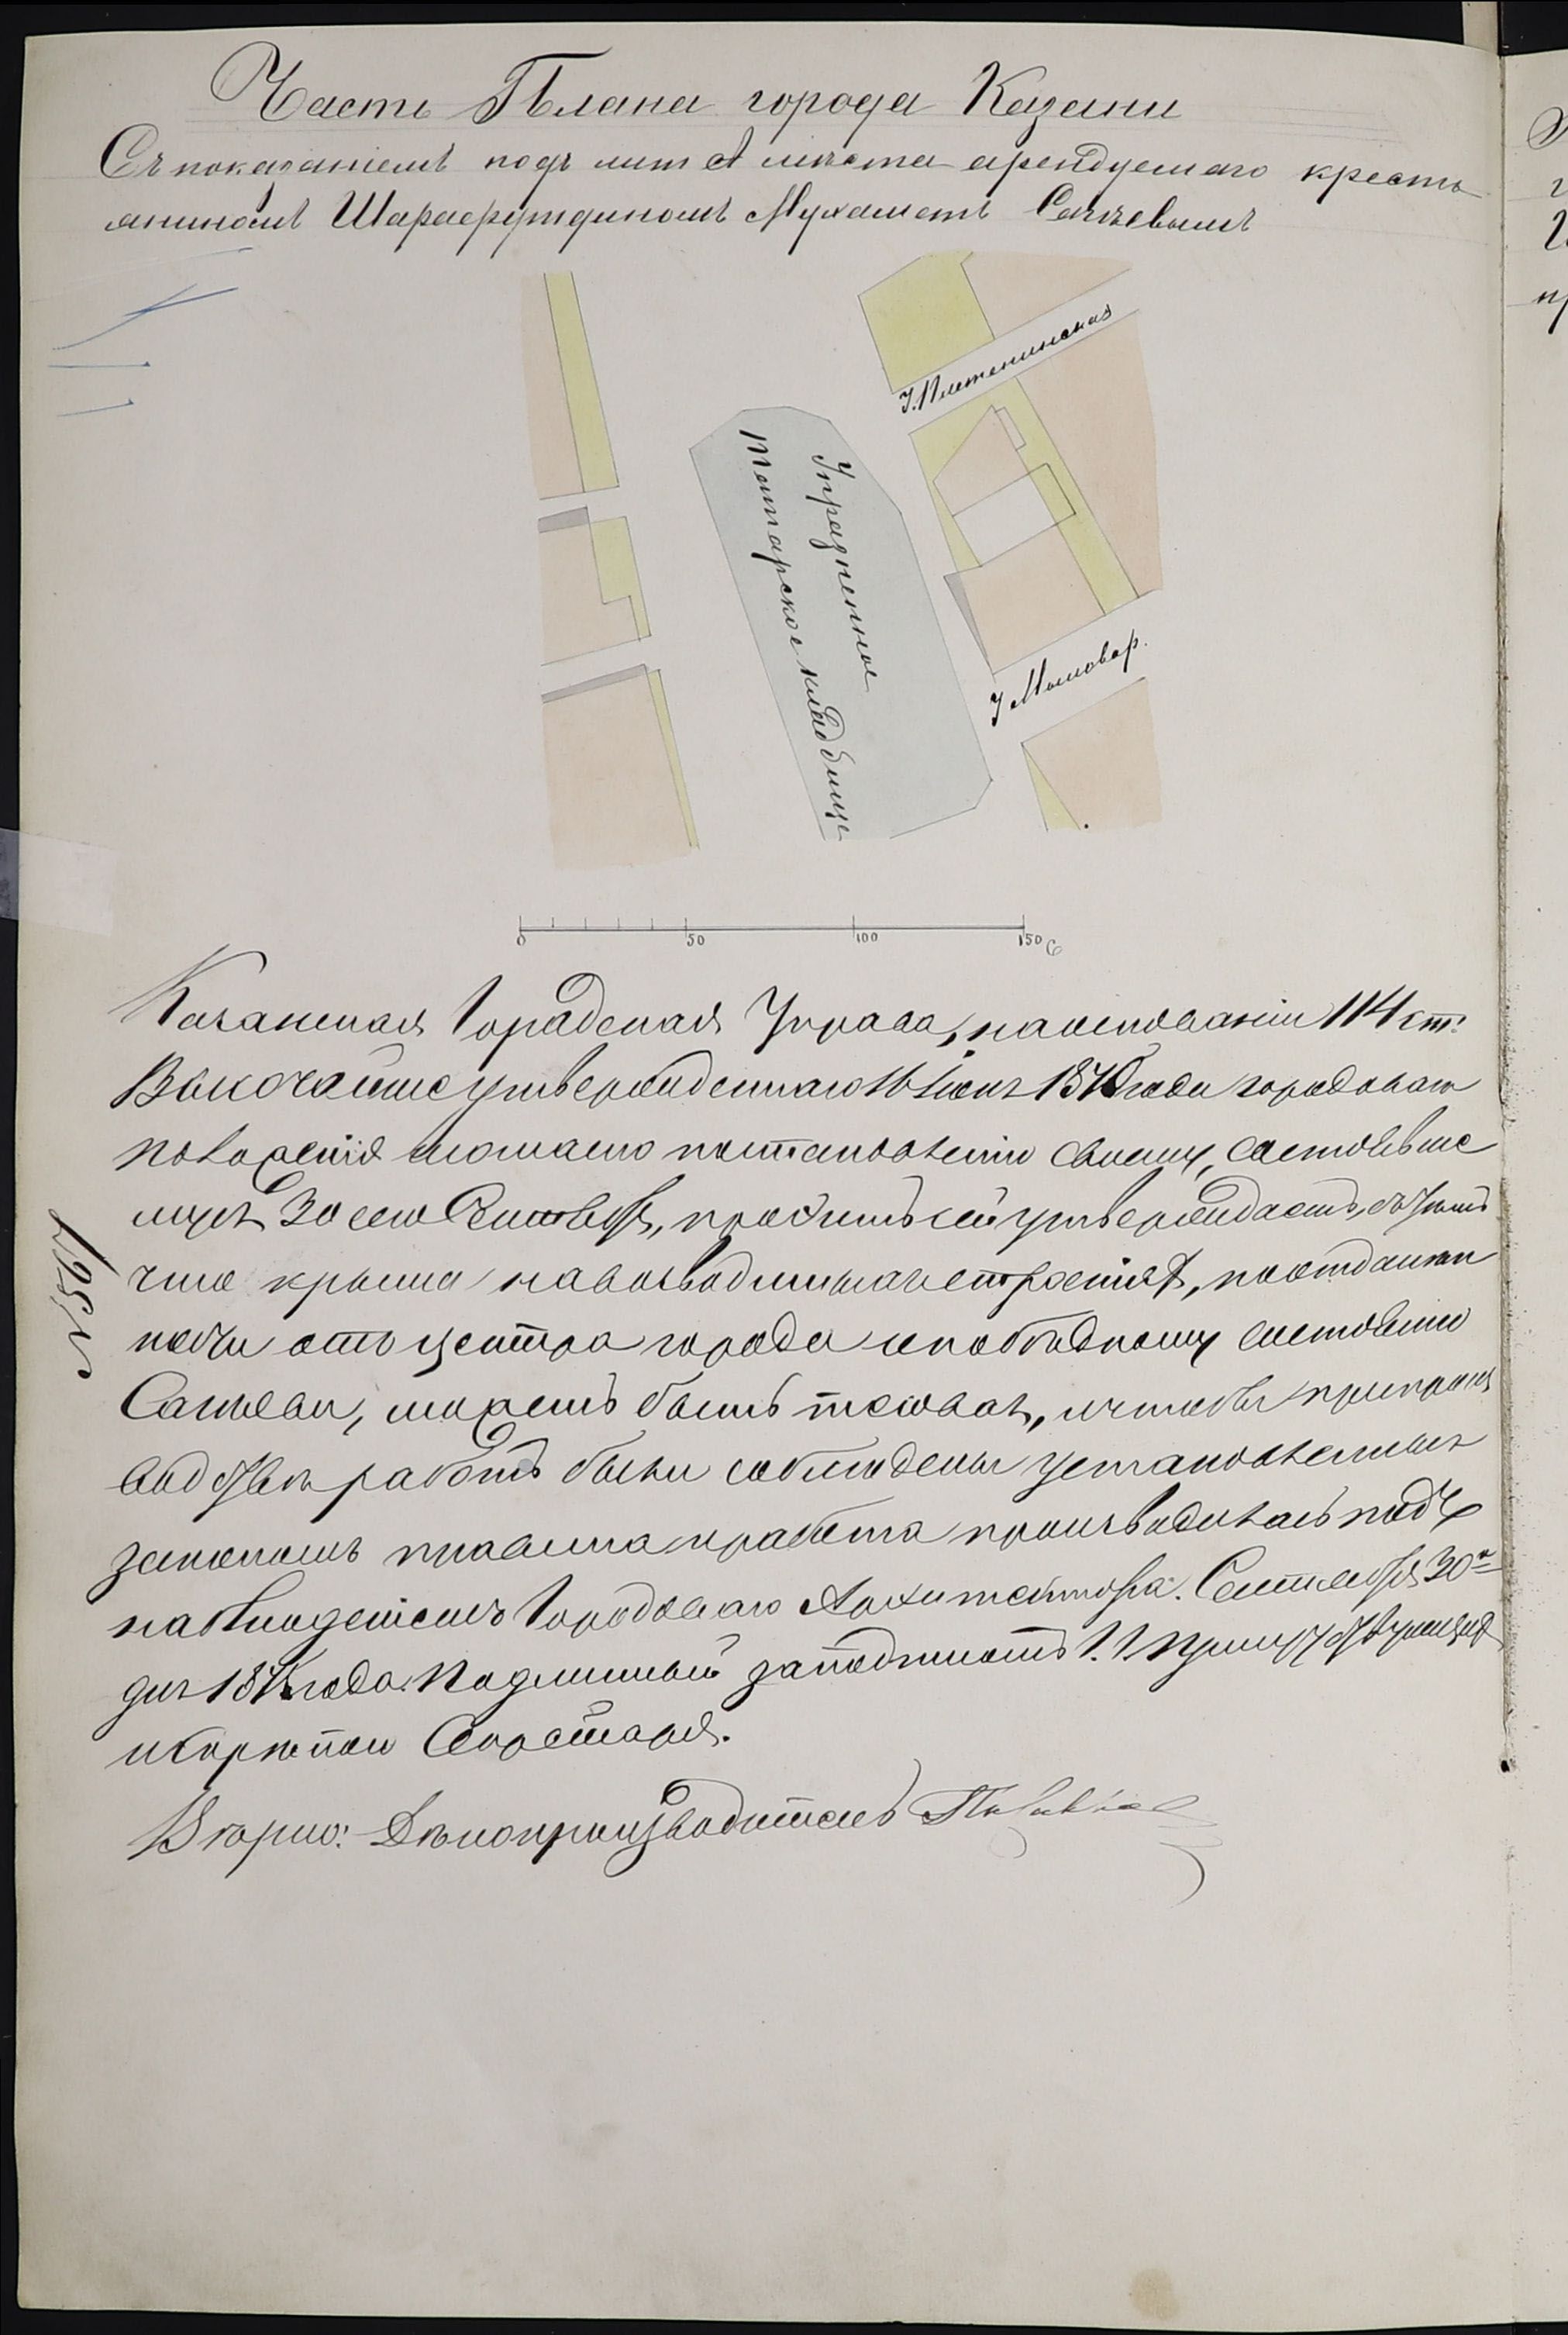 Часть Плана города Казани
Съ показаніемъ подъ лит А мѣста арендуемаго кресть
яниномъ Шарафутдиномъ Мухаметъ Сагѣевымъ
У. Плетенинская
Упраздненное
Татарское кладбище
У Мыловар.
0 50 100 150 С
Казанская Городская Управа, на основаніи 114 ст.
Высочайше утвержденнаго 16 Іюня 1870 года городоваго
положенія согласно постановленію своему, состоявше
муся 30 сего Сентября, проэктъ сей утверждаетъ, съ тѣмъ
что крыша на возводимыхъ строеніях, по отдален
ности отъ центра города и по бѣдному состоянію
Сагѣева, можетъ быть тесовая, и чтобы при произ
водствѣ работъ были соблюдены установленныя
закономъ правила и работа производилась подъ
наблюденіемъ Городоваго Архитектора. Сентября 30
дня 187 года. Подлинный за подписомъ Г.г. Присутствующих
и скрѣпою Секретаря.
Вѣрно: Дѣлопроизводитель